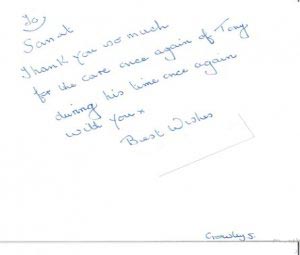 To
Thank you so much
for the care once again of Tony
during his time once again
with you x
Best Wishes
Crowley S.